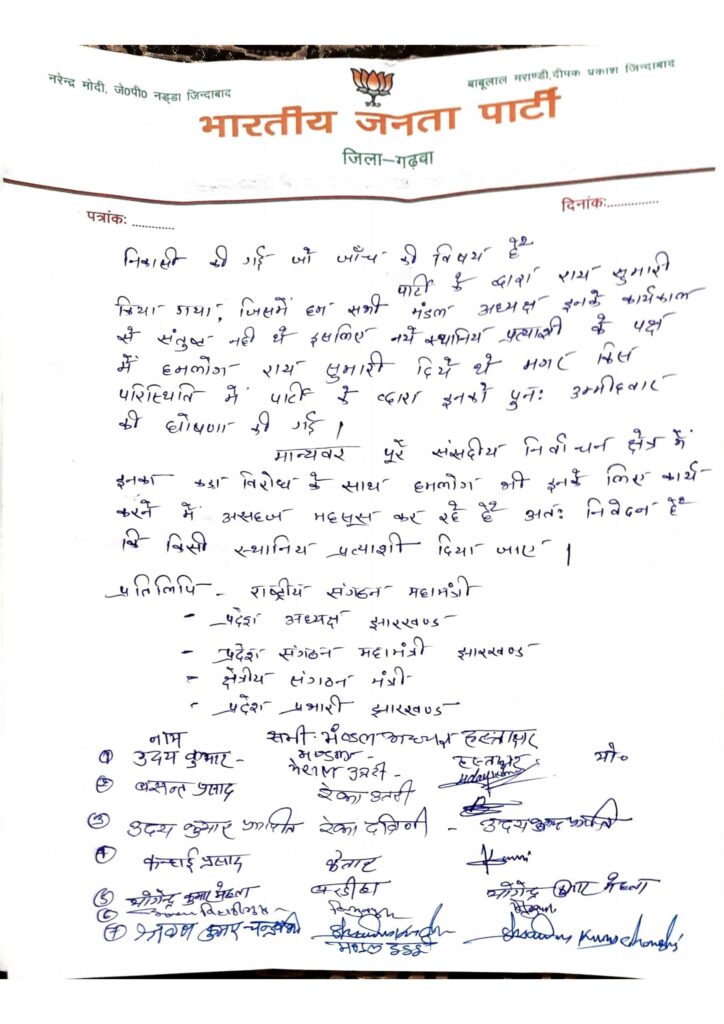 नरेन्द्र मोदी, जे0पी0 नड्डा जिन्दाबाद
बाबूलाल मराण्डी,दीपक प्रकाश जिन्दाबाद
भारतीय जनता पार्टी
जिला-गढ़वा
पत्रांक: ............
दिनांक:...............
निकासी की गई जो जाँच की विषय है
पार्टी के द्वारा राय सुमारी
किया गया, जिसमें हम सभी मंडल अध्यक्ष इनके कार्यकाल
से संतुष्ट नही थे इसलिए नये स्थानिय प्रत्याशी के पक्ष
में हमलोग राय सुमारी दिये थे मगर किस
परिस्थिति में पार्टी के व्दारा इनको पुनः उम्मीदवार
की घोषणा की गई।
मान्यवर पूरे संसदीय निर्वाचन क्षेत्र में
इनका कड़ा विरोध के साथ हमलोग भी इनके लिए कार्य
करने में असहज महसूस कर रहे है अतः निवेदन है
कि किसी स्थानिय प्रत्याशी दिया जाए।
प्रतिलिपि - राष्ट्रीय संगठन महामंत्री
- प्रदेश अध्यक्ष झारखण्ड
- प्रदेश संगठन महामंत्री झारखण्ड
- क्षेत्रीय संगठन मंत्री
- प्रदेश प्रभारी झारखण्ड
नाम सभी मंडल अध्यक्ष हस्ताक्षर
① उदय कुमार - मण्डल मेराल उतरी - हस्ताक्षर मो०
Uday Kumar
② बसन्त प्रसाद रंका उतरी
③ उदय कुमार रंका दक्षिणी - उदय कुमार
④ कन्हाई प्रसाद केतार
⑤ योगेन्द्र कुमार मेहता बरडीहा योगेन्द्र कुमार मेहता
⑥
⑦ श्रवण कुमार चन्द्रवंशी
मंडल डंडई